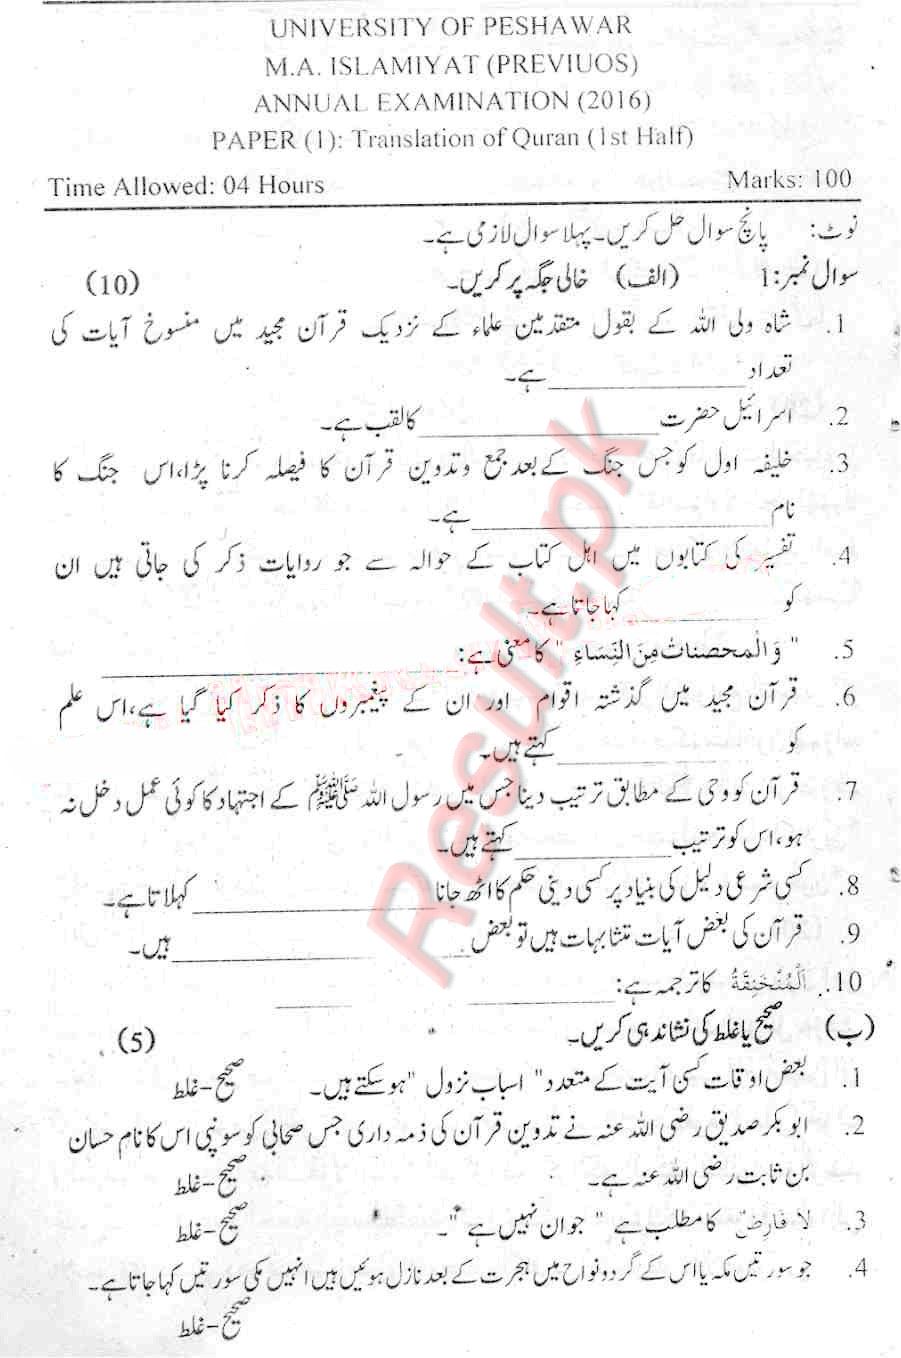 UNIVERSITY OF PESHAWAR
M.A. ISLAMIYAT (PREVIUOS)
ANNUAL EXAMINATION (2016)
PAPER (1): Translation of Quran (1st Half)
Time Allowed: 04 Hours Marks: 100
نوٹ: پانچ سوال حل کریں۔ پہلا سوال لازمی ہے۔
سوال نمبر:1 (الف) خالی جگہ پر کریں۔ (10)
1. شاہ ولی اللہ کے بقول متقدمین علماء کے نزدیک قرآن مجید میں منسوخ آیات کی
تعداد ____________ ہے۔
2. اسرائیل حضرت ____________ کا لقب ہے۔
3. خلیفہ اول کو جس جنگ کے بعد جمع وتدوین قرآن کا فیصلہ کرنا پڑا، اس جنگ کا
نام ____________ ہے۔
4. تفسیر کی کتابوں میں اہل کتاب کے حوالہ سے جو روایات ذکر کی جاتی ہیں ان
کو ____________ کہا جاتا ہے۔
5. "وَالمحصنات مِنَ النِّسَاءِ" کا معنی ہے: ____________
6. قرآن مجید میں گذشتہ اقوام اور ان کے پیغمبروں کا ذکر کیا گیا ہے، اس علم
کو ____________ کہتے ہیں۔
7. قرآن کو وحی کے مطابق ترتیب دینا جس میں رسول اللہ ﷺ کے اجتہاد کا کوئی عمل دخل نہ
ہو، اس کو ترتیب ____________ کہتے ہیں۔
8. کسی شرعی دلیل کی بنیاد پر کسی دینی حکم کا اٹھ جانا ____________ کہلاتا ہے۔
9. قرآن کی بعض آیات متشابہات ہیں تو بعض ____________ ہیں۔
10. اَلْمُنْخَنِقَةُ کا ترجمہ ہے: ____________
(ب) صحیح یا غلط کی نشاندہی کریں۔ (5)
1. بعض اوقات کسی آیت کے متعدد "اسباب نزول" ہو سکتے ہیں۔ صحیح-غلط
2. ابو بکر صدیق رضی اللہ عنہ نے تدوین قرآن کی ذمہ داری جس صحابی کو سونپی اس کا نام حسان
بن ثابت رضی اللہ عنہ ہے۔ صحیح-غلط
3. لَا فَارِضٌ کا مطلب ہے "جوان نہیں ہے"۔ صحیح-غلط
4. جو سورتیں مکہ یا اس کے گرد ونواح میں ہجرت کے بعد نازل ہوئیں ہیں انہیں مکی سورتیں کہا جاتا ہے۔
صحیح-غلط
Result.pk